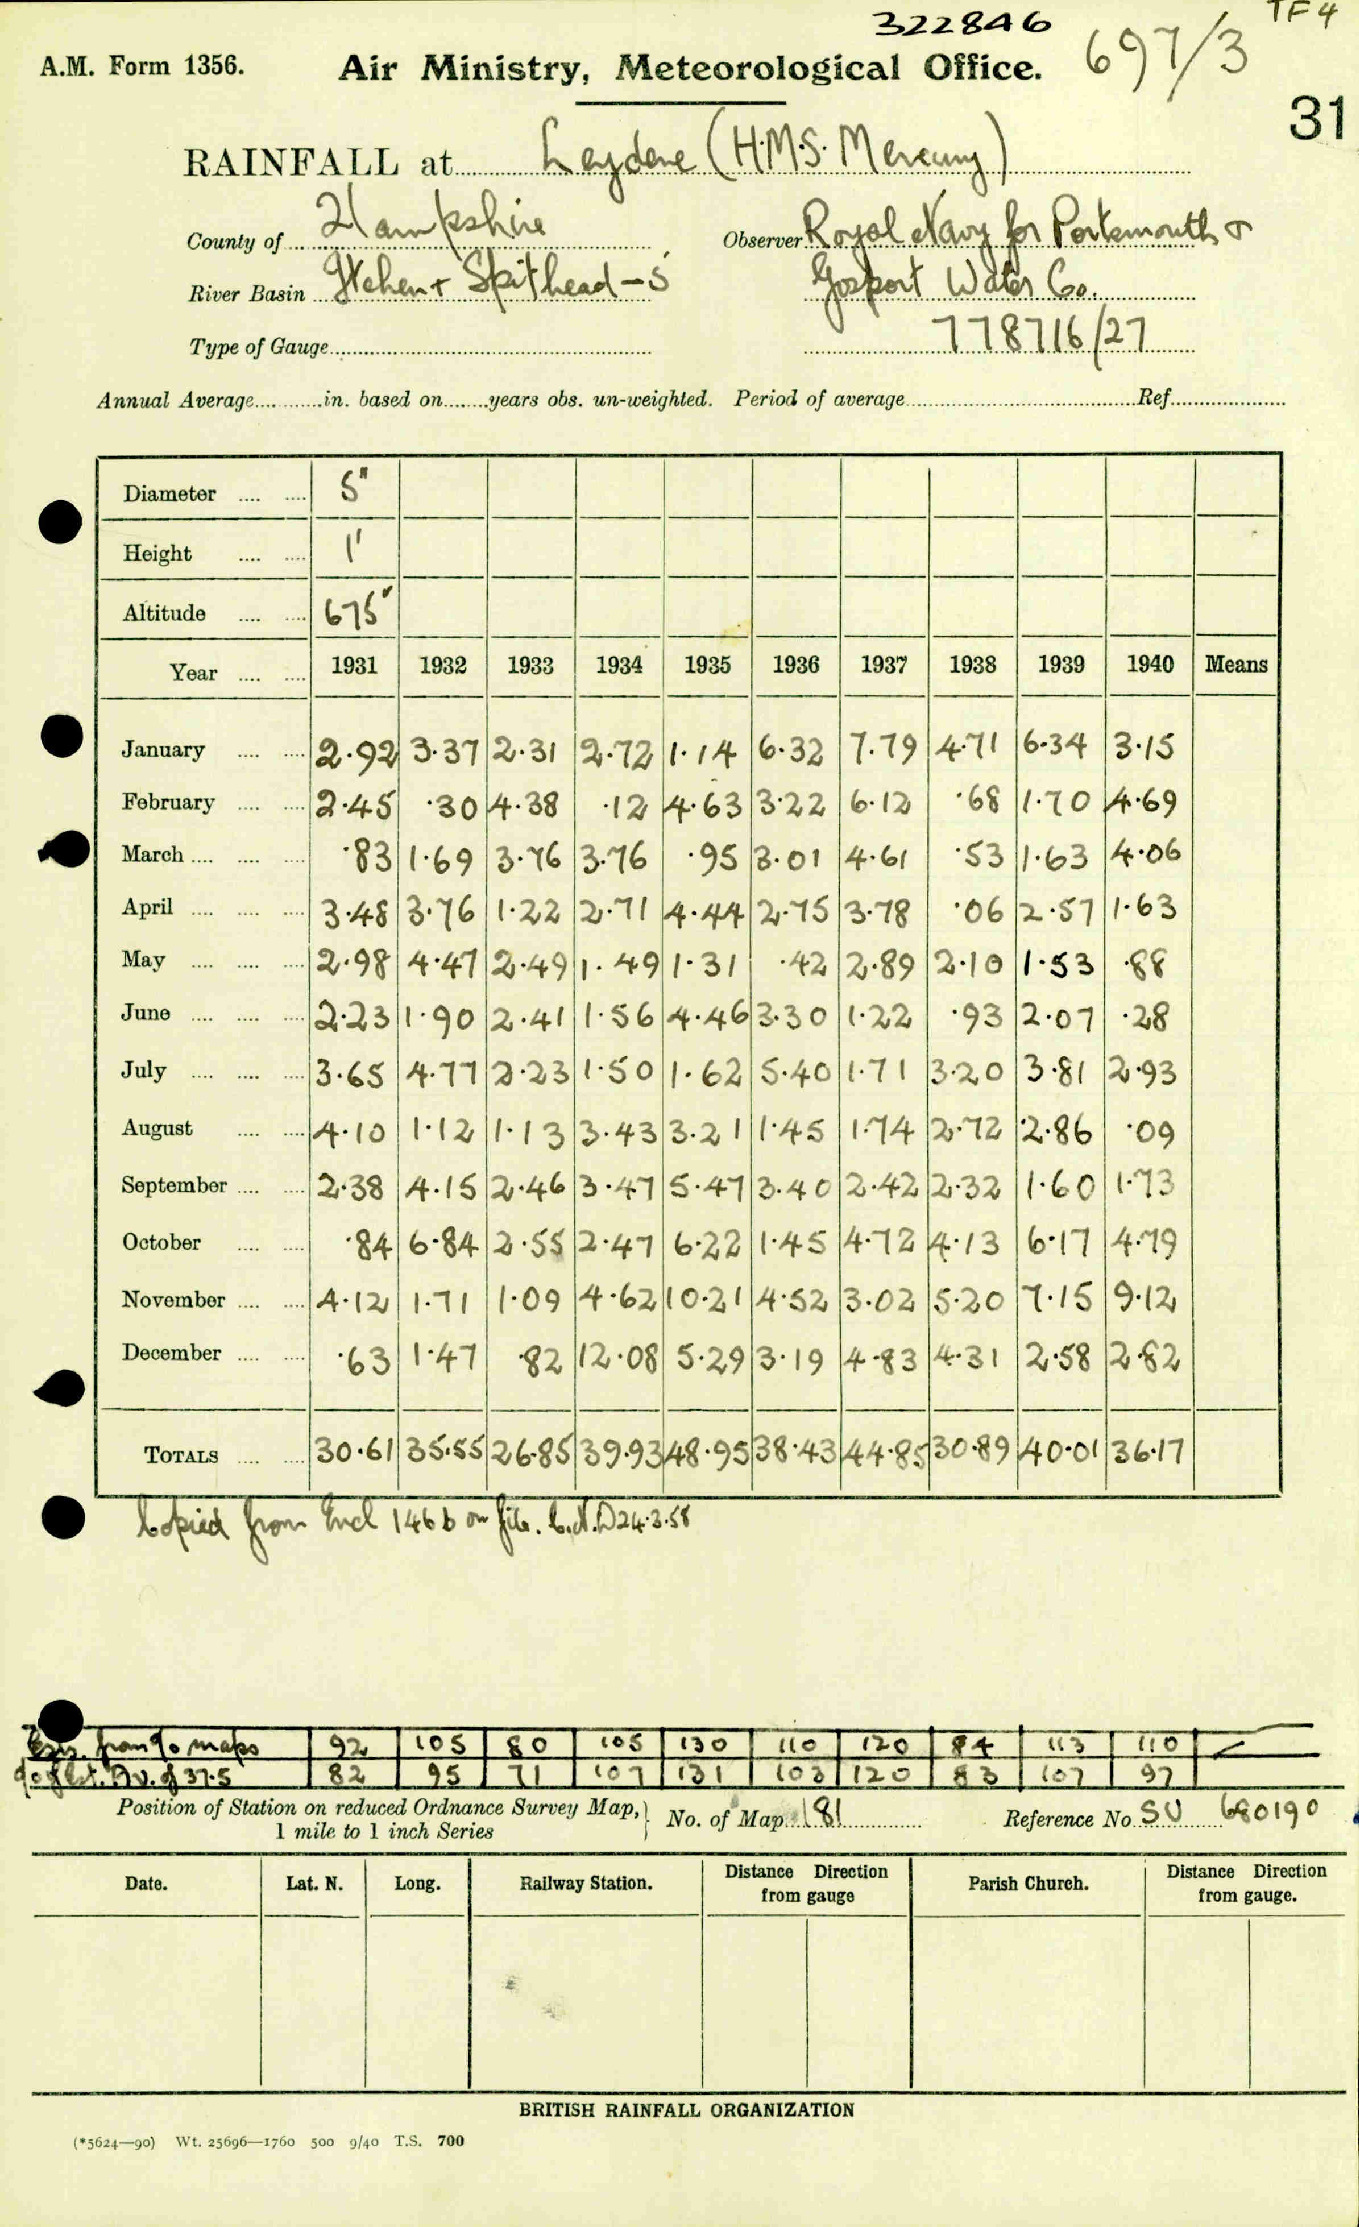 322846 TF 4
A.M. Form 1356. Air Ministry, Meteorological Office. 697/3
31
RAINFALL at Leydene (H.M.S. Mercury)
County of Hampshire Observer Royal Navy for Portsmouth &
River Basin Itchen & Spithead - 5 Gosport Water Co.
Type of Gauge 778716/27
Annual Average in. based on years obs. un-weighted. Period of average Ref
Diameter 5"
Height 1'
Altitude 675'
Year 1931 1932 1933 1934 1935 1936 1937 1938 1939 1940 Means
January 2.92 3.37 2.31 2.72 1.14 6.32 7.79 4.71 6.34 3.15
February 2.45 .30 4.38 .12 4.63 3.22 6.12 .68 1.70 4.69
March .83 1.69 3.76 3.76 .95 3.01 4.61 .53 1.63 4.06
April 3.48 3.76 1.22 2.71 4.44 2.75 3.78 .06 2.57 1.63
May 2.98 4.47 2.49 1.49 1.31 .42 2.89 2.10 1.53 .88
June 2.23 1.90 2.41 1.56 4.46 3.30 1.22 .93 2.07 .28
July 3.65 4.77 2.23 1.50 1.62 5.40 1.71 3.20 3.81 2.93
August 4.10 1.12 1.13 3.43 3.21 1.45 1.74 2.72 2.86 .09
September 2.38 4.15 2.46 3.47 5.47 3.40 2.42 2.32 1.60 1.73
October .84 6.84 2.55 2.47 6.22 1.45 4.72 4.13 6.17 4.79
November 4.12 1.71 1.09 4.62 10.21 4.52 3.02 5.20 7.15 9.12
December .63 1.47 .82 12.08 5.29 3.19 4.83 4.31 2.58 2.82
TOTALS 30.61 35.55 26.85 39.93 48.95 38.43 44.85 30.89 40.01 36.17
Copied from Encl 146b on file. C.N.D 24.3.58
from % maps 92 105 80 105 130 110 120 84 113 110
% of Est. Av. of 37.5 82 95 71 107 131 103 120 83 107 97
Position of Station on reduced Ordnance Survey Map, No. of Map 181 Reference No SU 680190
1 mile to 1 inch Series
Date. Lat. N. Long. Railway Station. Distance Direction from gauge Parish Church. Distance Direction from gauge.
BRITISH RAINFALL ORGANIZATION
(*5624—90) Wt. 25696—1760 500 9/40 T.S. 700